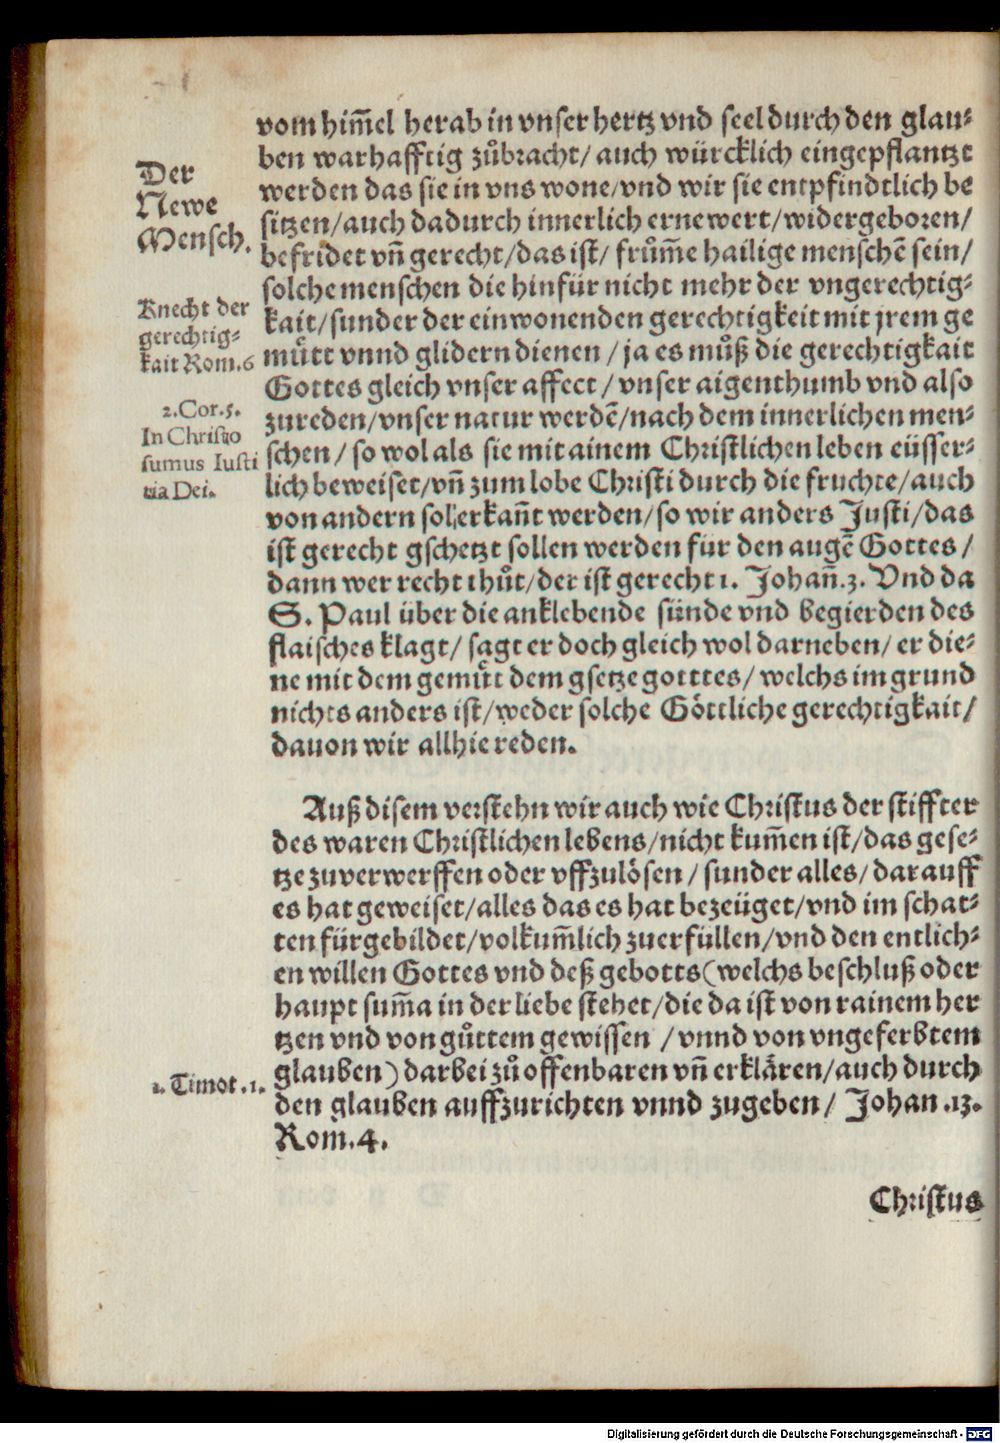 vom him̃el herab in vnser hertz vnd seel durch den glau⸗
ben warhafftig zůbracht/ auch würcklich eingepflantzt
werden das sie in vns wone/vnd wir sie entpfindtlich be
sitzen/auch dadurch innerlich ernewert/widergeboren/
befridet vñ gerecht/das ist/ frům̃e hailige menschẽ sein/
solche menschen die hinfür nicht mehr der vngerechtig⸗
kait/sunder der einwonenden gerechtigkeit mit jrem ge
muͤtt vnnd glidern dienen / ja es můß die gerechtigkait
Gottes gleich vnser affect / vnser aigenthumb vnd also
zureden/vnser natur werdẽ/nach dem innerlichen men⸗
schen / so wol als sie mit ainem Christlichen leben eüsser⸗
lich beweiset/vñ zum lobe Christi durch die fruchte/auch
von andern sol erkañt werden/so wir anders Justi/das
ist gerecht gschetzt sollen werden für den augẽ Gottes /
dann wer recht thůt/der ist gerecht 1. Johañ.3. Vnd da
S. Paul über die anklebende sünde vnd begierden des
flaisches klagt/ sagt er doch gleich wol darneben/ er die⸗
ne mit dem gemuͤt dem gsetze gotttes/ welchs im grund
nichts anders ist/weder solche Göttliche gerechtigkait/
dauon wir allhie reden.
Der
Newe
Mensch.
Knecht der
gerechtig⸗
kait Rom.6
2.Cor.5.
In Christo
sumus Iusti
tia Dei.
Auß disem verstehn wir auch wie Christus der stiffter
des waren Christlichen lebens/nicht kum̃en ist/das gese⸗
tze zuverwerffen oder vffzulösen / sunder alles/ darauff
es hat geweiset/alles das es hat bezeüget/vnd im schat⸗
ten fürgebildet/volkum̃lich zuerfüllen/vnd den entlich⸗
en willen Gottes vnd deß gebotts(welchs beschluß oder
haupt sum̃a in der liebe stehet/die da ist von rainem her
tzen vnd von gůttem gewissen / vnnd von vngeferbtem
glauben) darbei zů offenbaren vñ erklären/auch durch
den glauben auffzurichten vnnd zugeben/ Johan .13.
Rom.4.
1. Timot .1.
Christus
Digitalisierung gefördert durch die Deutsche Forschungsgemeinschaft - DFG